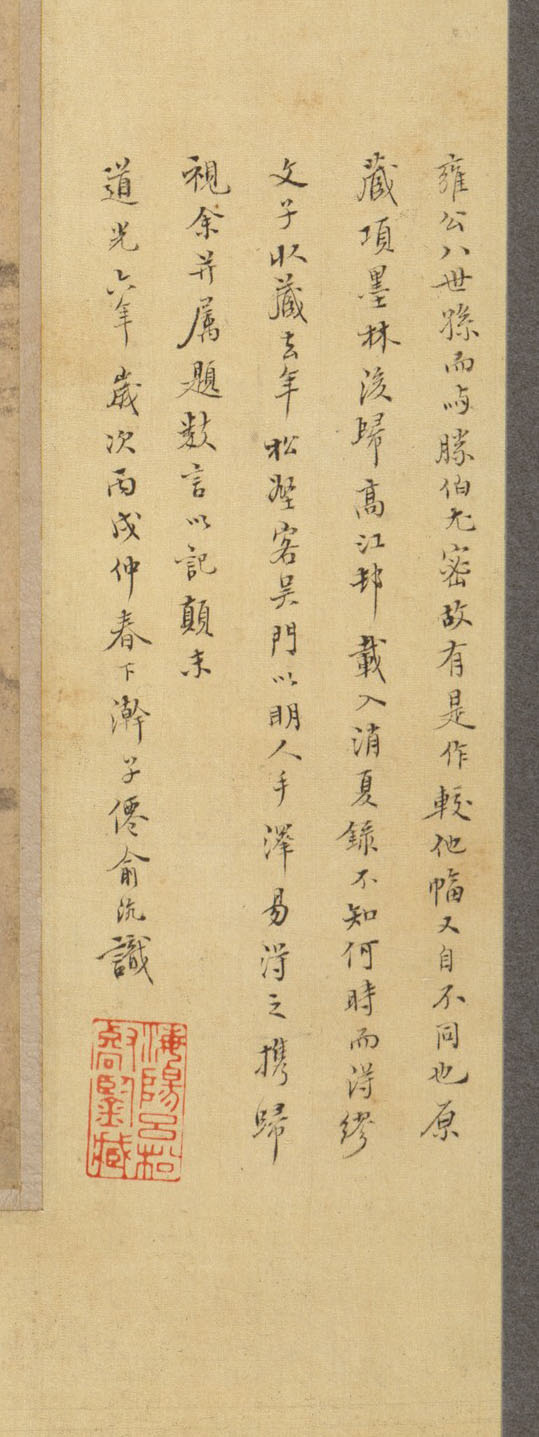 雍公八世孫而與勝伯尤密故有是作較他幅又自不同也原
藏項墨林後歸高江邨載入消夏錄不知何時而得繆
文子收藏去年松壑客吳門以明人手澤易得之攜歸
視余并屬題數言以記顛末
道光六年歲次丙戌仲春下澣子僊俞沅識
海陽呂松
壑鑒藏